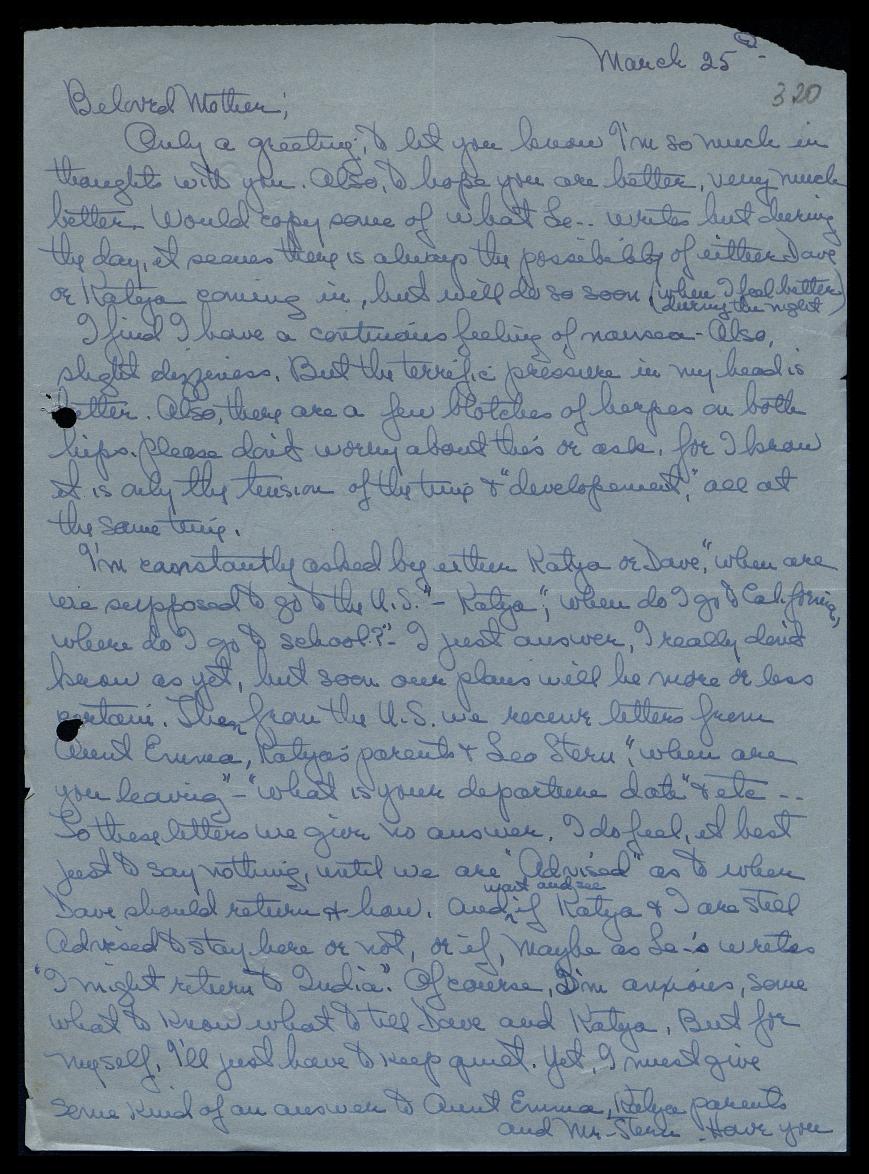 March 25th -
320
Beloved Mother;
Only a greeting, to let you know I'm so much in
thoughts with you. Also, to hope you are better, very much
better. Would copy some of what Le-- writes but during
the day, it seems there is always the possibility of either Dave
or Katya coming in, but will do so soon (when I feel better)
during the night
I find I have a continuous feeling of nausea- Also,
slight dizziness. But the terrific pressure in my head is
better. Also, there are a few blotches of herpes on both
hips. Please don't worry about this or ask, for I know
it is only the tension of the time & "developement", all at
the same time.
I'm constantly asked by either Katya or Dave, "when are
we supposed to go to the U.S." - Katya; "when do I go to California,
where do I go to school?"- I just answer, I really don't
know as yet, but soon our plans will be more or less
certain. Then from the U.S. we receive letters from
Aunt Emma, Katya's parents & Leo Stern, "when are
you leaving" - "what is your departure date" & etc --
To these letters we give no answer. I do feel, it best
just to say nothing, until we are "Advised" as to when
Dave should return & how. And, wait and see if Katya & I are still
Advised to stay here or not, or if, maybe as Le-'s writes
"I might return to India". Of course, I'm anxious, some
what to know what to tell Dave and Katya. But for
myself, I'll just have to keep quiet. Yet, I must give
some kind of an answer to Aunt Emma, Katya parents
and Mr. Stern. Have you